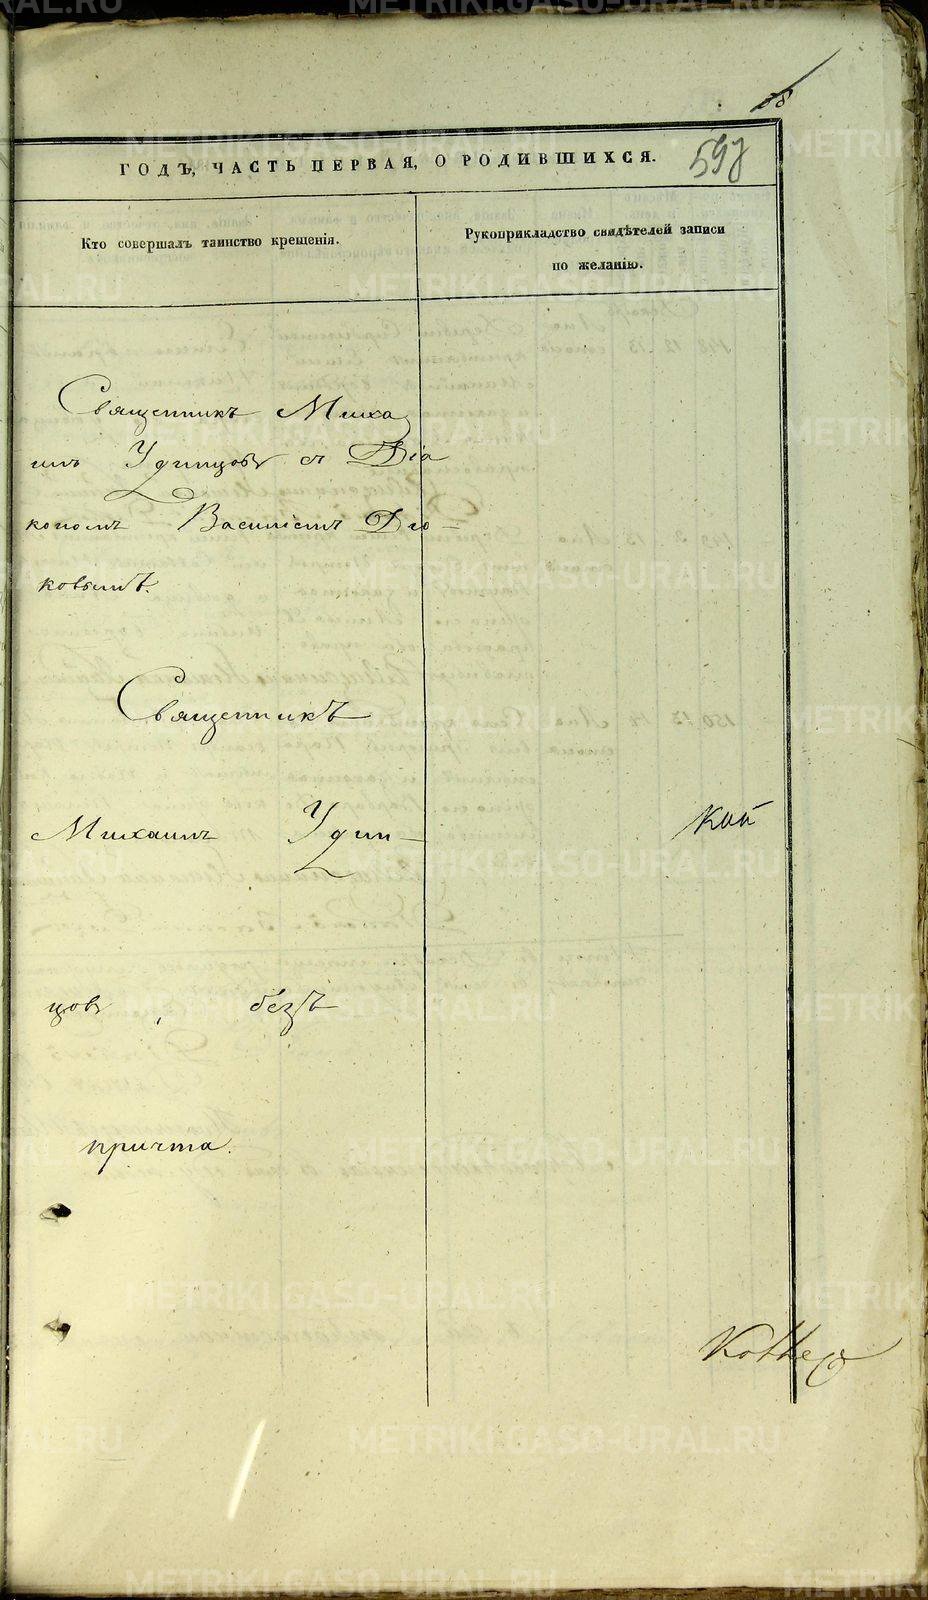 ГОДЪ, ЧАСТЬ ПЕРВАЯ, О РОДИВШИХСЯ.
Кто совершалъ таинство крещенія.
Рукоприкладство свидѣтелей записи
по желанію.
Священникъ Миха
илъ Удинцовъ съ Діа
кономъ Василіемъ
ковымъ.
Священникъ
Михаилъ Удин-
цовъ, безъ
причта.
METRIKI.GASO-URAL.RU